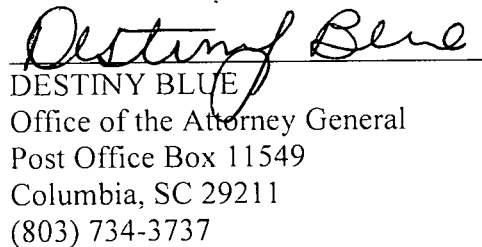 Destiny Blue
DESTINY BLUE
Office of the Attorney General
Post Office Box 11549
Columbia, SC 29211
(803) 734-3737